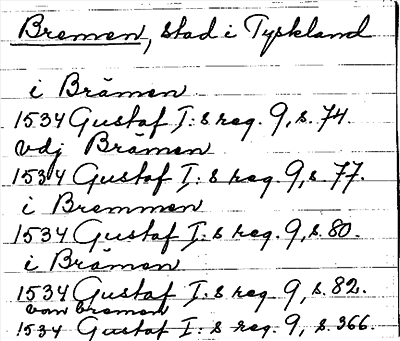 Bremen, stad i Tyskland
i Brämen
1534 Gustaf I:s reg. 9, s. 74.
vdj Brämen
1534 Gustaf I:s reg. 9, s. 77.
i Bremmen
1534 Gustaf I:s reg. 9, s. 80.
i Brämen
1534 Gustaf I:s reg. 9, s. 82.
van bremen
1534 Gustaf I:s reg. 9, s. 366.